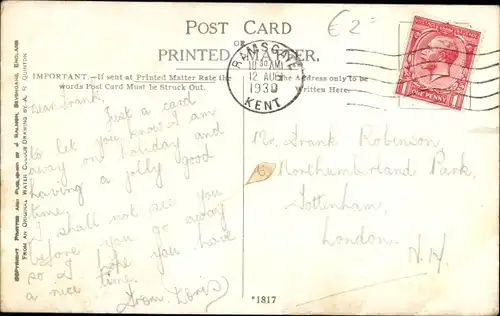 POST CARD
OR
PRINTED MATTER.
€2=
RAMSGATE
10 30 AM
12 AUG
1930
KENT
POSTAGE
REVENUE
ONE PENNY
IMPORTANT.—If sent at Printed Matter Rate the
words Post Card must be Struck Out.
The Address only to be
Written Here.
COPYRIGHT PRINTED AND PUBLISHED BY J SALMON, SEVENOAKS, ENGLAND
FROM AN ORIGINAL WATER COLOUR DRAWING BY A. R. QUINTON
Dear Frank.
Just a card
to let you know I am
away on holiday and
having a jolly good
time.
I shall not see you
before you go away
so I hope you have
a nice time.
From Doris
Mr. Frank Robinson,
6 Northumberland Park,
Tottenham,
London.
N.
*1817